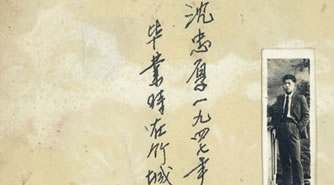 沈忠厚一九四七年
毕業時在竹城